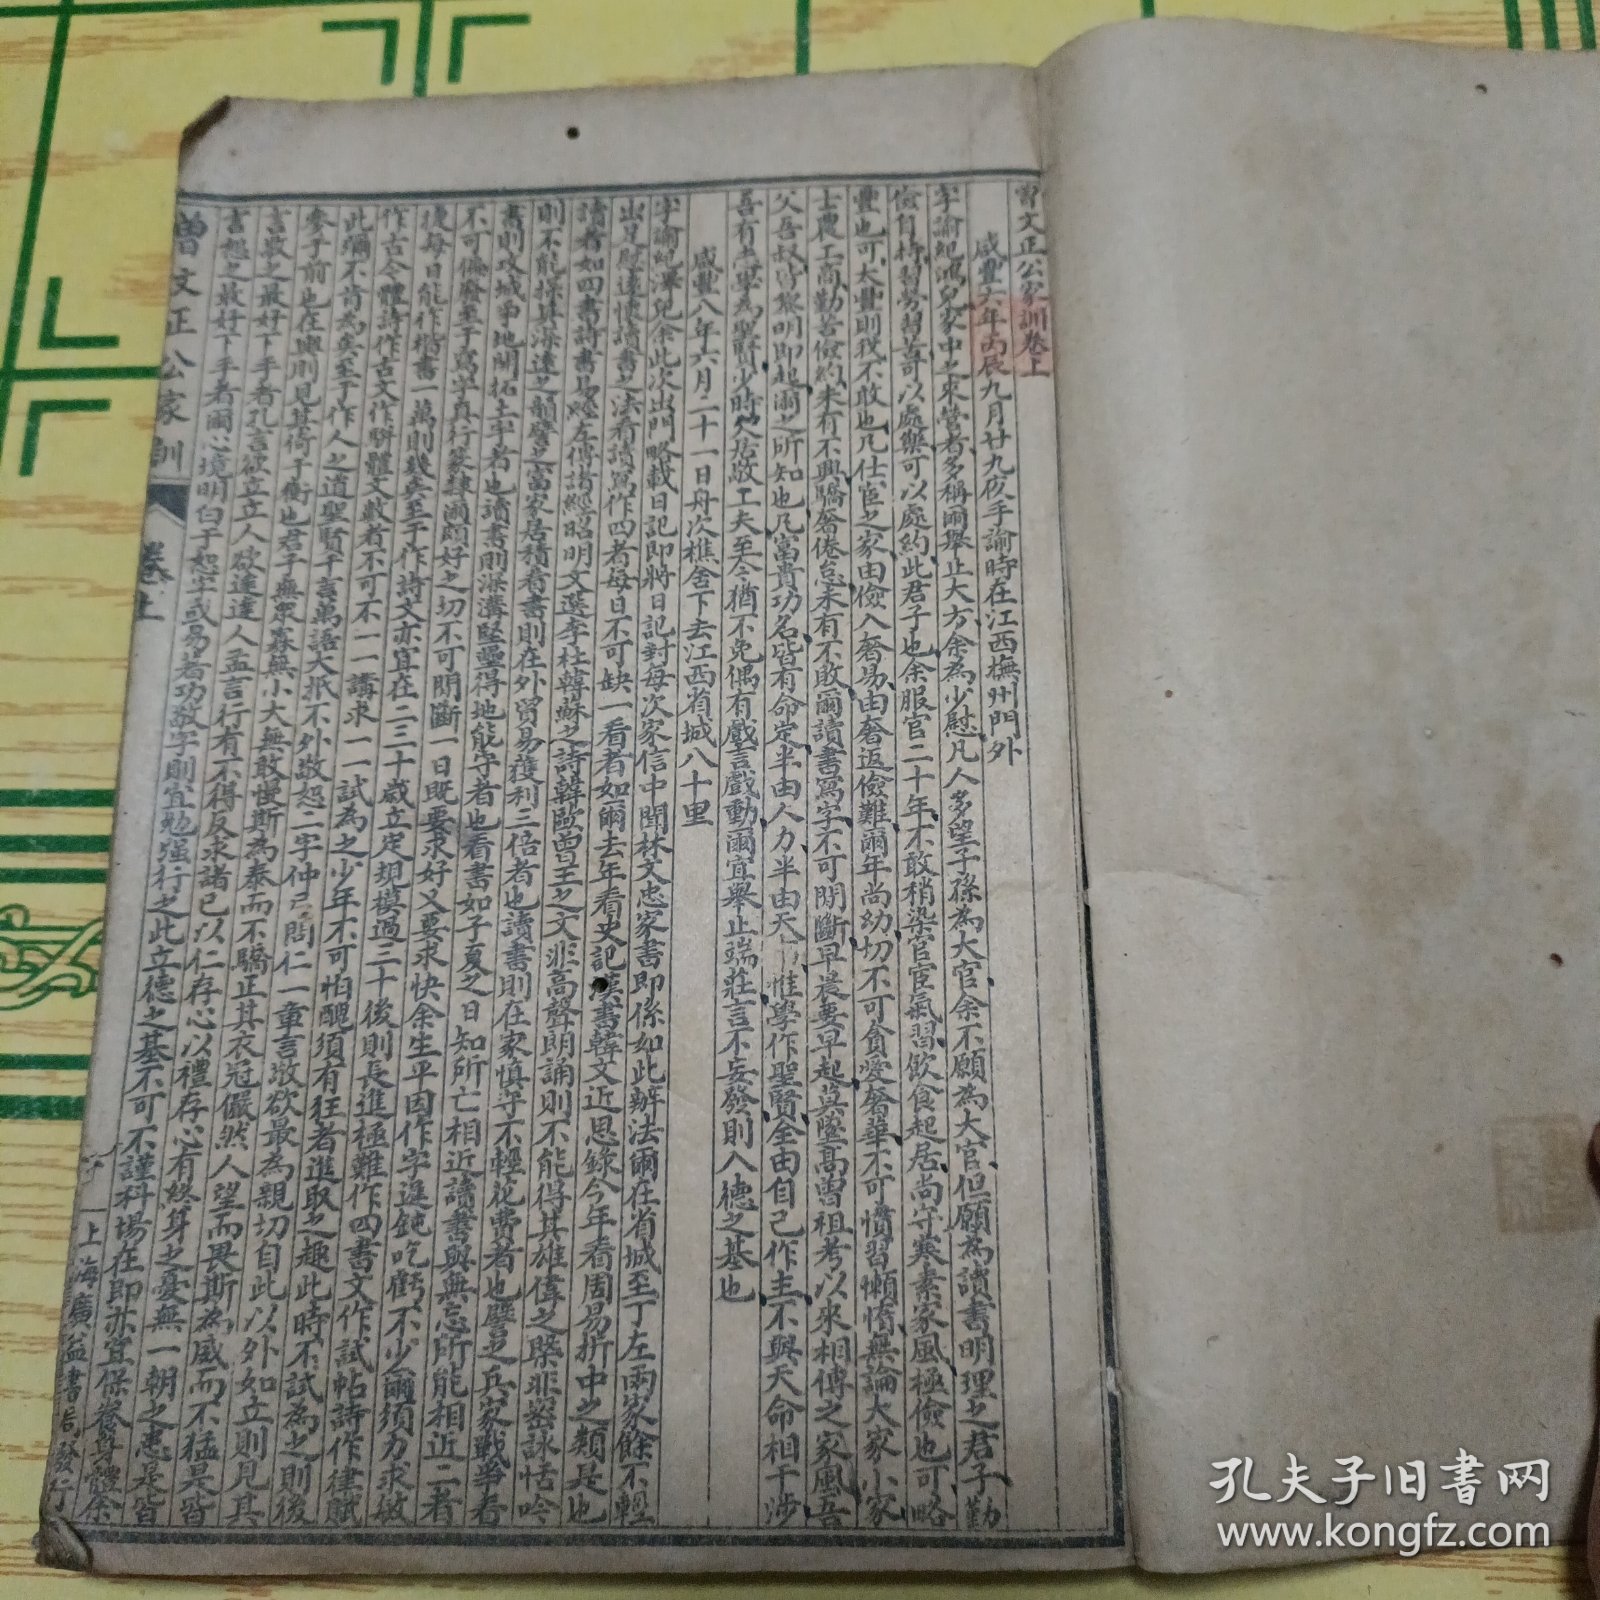 曾文正公家訓卷上
咸豐六年丙辰九月廿九夜手諭時在江西撫州門外
字諭紀鴻兒家中之來營者多稱爾舉止大方余為少慰凡人多望子孫為大官余不願為大官但願為讀書明理之君子勤
儉自持習勞習苦可以處樂可以處約此君子也余服官二十年不敢稍染官宦氣習飲食起居尚守寒素家風極儉也可略
豐也可太豐則我不敢也凡仕宦之家由儉入奢易由奢返儉難爾年尚幼切不可貪愛奢華不可慣習懶惰無論大家小家
士農工商勤苦儉約未有不興驕奢倦怠未有不敗爾讀書寫字不可間斷早晨要早起莫墜高曾祖考以來相傳之家風吾
父吾叔皆黎明即起爾之所知也凡富貴功名皆有命定半由人力半由天 惟學作聖賢全由自己作主不與天命相干涉
吾有志學為聖賢少時欠居敬工夫至今猶不免偶有戲言戲動爾宜舉止端莊言不妄發則入德之基也
咸豐八年六月二十一日舟次樵舍下去江西省城八十里
字諭紀澤兒余此次出門略載日記即將日記封每次家信中聞林文忠家書即係如此辦法爾在省城至丁左兩家餘不輕
出足慰遠懷讀書之法看讀寫作四者每日不可缺一看者如爾去年看史記漢書韓文近思錄今年看周易折中之類是也
讀者如四書詩書易經左傳諸經昭明文選李杜韓蘇之詩韓歐曾王之文非高聲朗誦則不能得其雄偉之槩非密詠恬吟
則不能探其深遠之韻譬之富家居積看書則在外貿易獲利三倍者也讀書則在家慎守不輕花費者也譬之兵家戰爭看
書則攻城爭地開拓土宇者也讀書則深溝堅壘得地能守者也看書如子夏之日知所亡相近讀書與無忘所能相近二者
不可偏廢至于寫字真行篆隸爾頗好之切不可間斷一日既要求好又要求快余生平因作字遲鈍吃虧不少爾須力求敏
捷每日能作楷書一萬則幾矣至于作詩文亦宜在二三十歲立定規模過三十後則長進極難作四書文作試帖詩作律賦
作古今體詩作古文作駢體文數者不可不一一講求一一試為之少年不可怕醜須有狂者進取之趣此時不試為之則後
此彌不肯為矣至于作人之道聖賢千言萬語大抵不外敬恕二字仲弓問仁一章言敬恕最為親切自此以外如立則見其
參于前也在輿則見其倚于衡也君子無眾寡無小大無敢慢斯為泰而不驕正其衣冠儼然人望而畏斯為威而不猛是皆
言敬之最好下手者孔言欲立立人欲達達人孟言行有不得反求諸己以仁存心以禮存心有終身之憂無一朝之患是皆
言恕之最好下手者爾心境明白于恕字或易著功敬字則宜勉強行之此立德之基不可不謹科場在即亦宜保養身體余
曾文正公家訓 卷上 一 上海廣益書局發行
孔夫子旧書网
www.kongfz.com